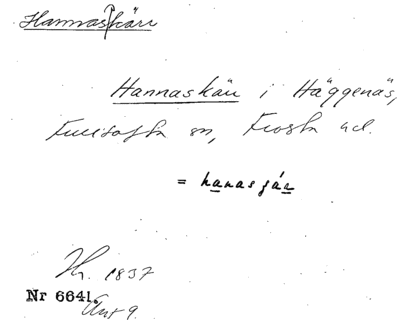 Hannaskärr
Hannaskärr i Häggenäs,
Fulltofta sn, Frosta hd.
= hanasjär
Hr. 1837
Nr 6641.
Ant 9.